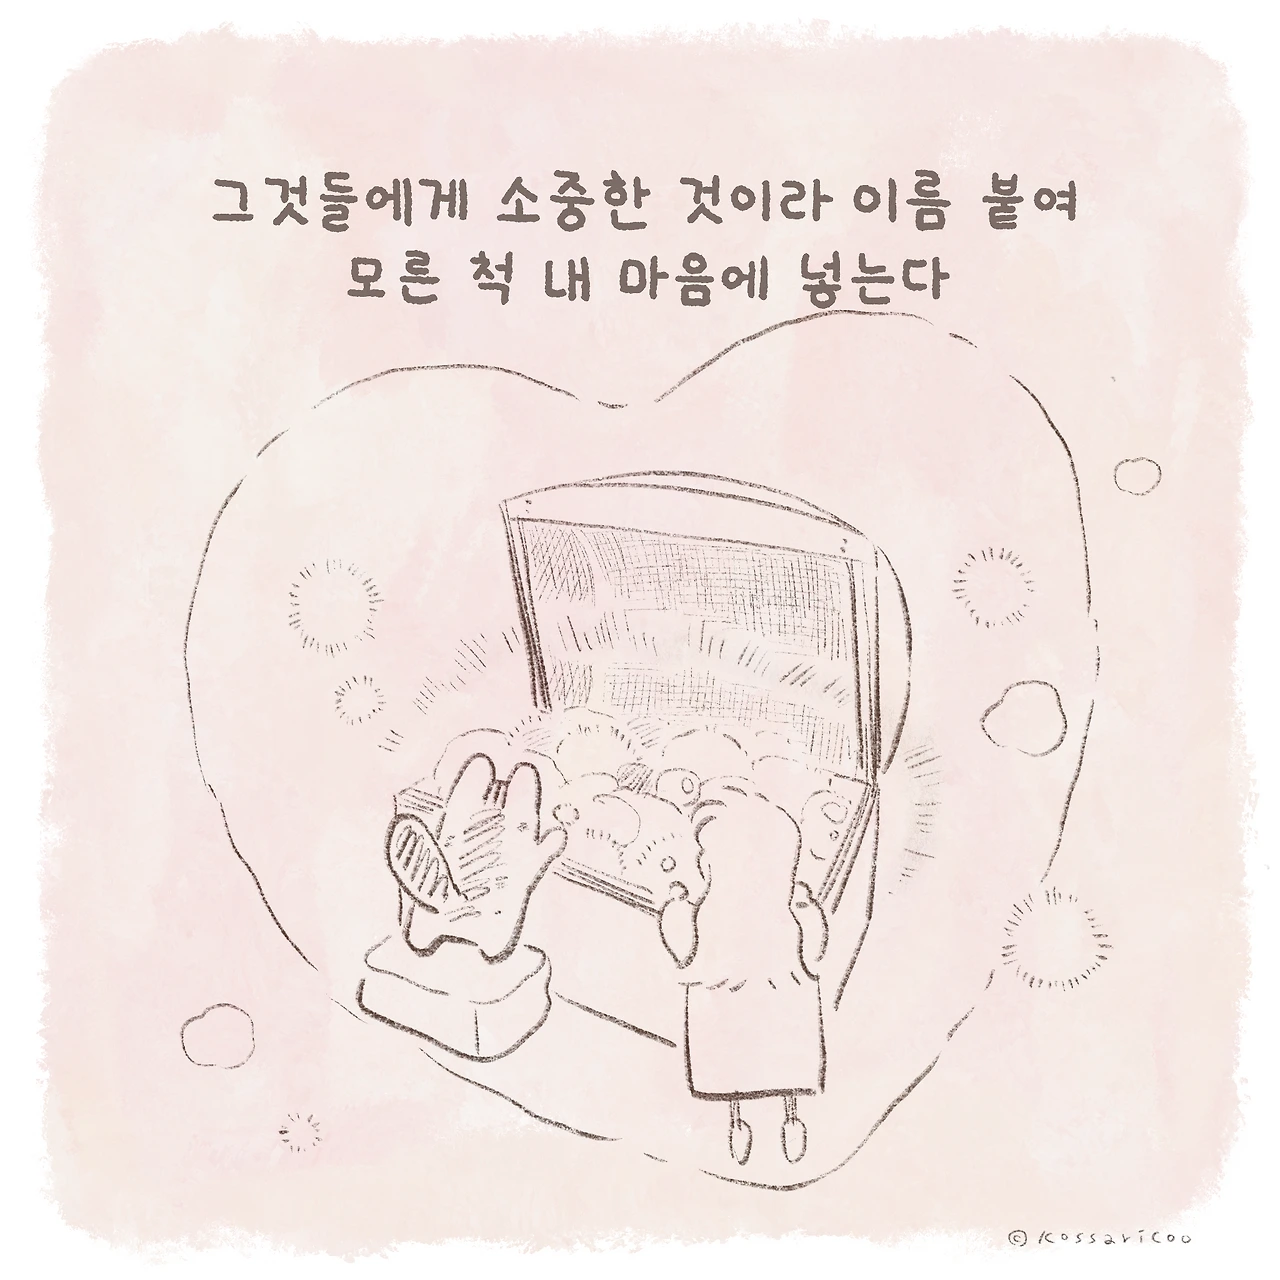 그것들에게 소중한 것이라 이름 붙여
모른 척 내 마음에 넣는다
© Kossaricoo